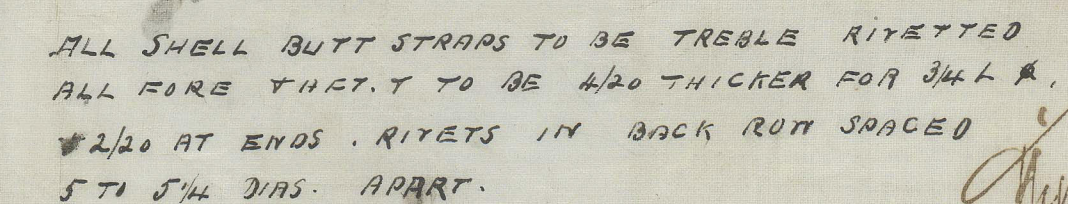 ALL SHELL BUTT STRAPS TO BE TREBLE RIVETTED
ALL FORE & AFT. T TO BE 4/20 THICKER FOR 3/4 L
& 2/20 AT ENDS. RIVETS IN BACK ROW SPACED
5 TO 5 1/4 DIAS. APART.